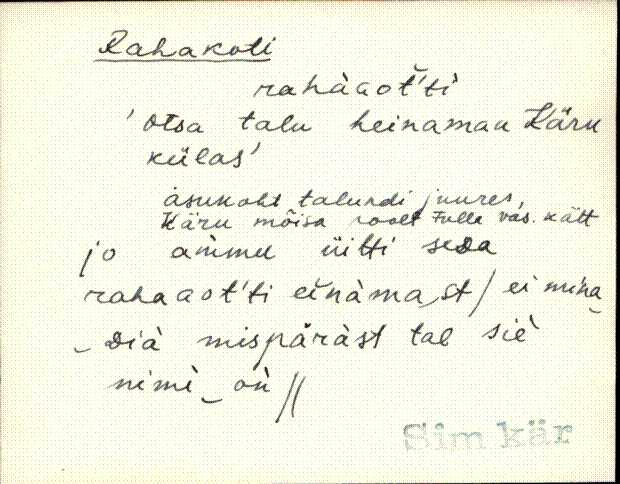 Rahakoti
rahàaot't'ì
'Otsa talu heinamaa Käru
külas'
asukoht talundi juures,
Käru mõisa poolt Fulle vas. kätt
jo am̀mu üìtti seda
rahaaot't'i eìnàma‿st / ei mina‿
‿Dià mispäràst tal siè
nimì‿on̄ //
Sim kär